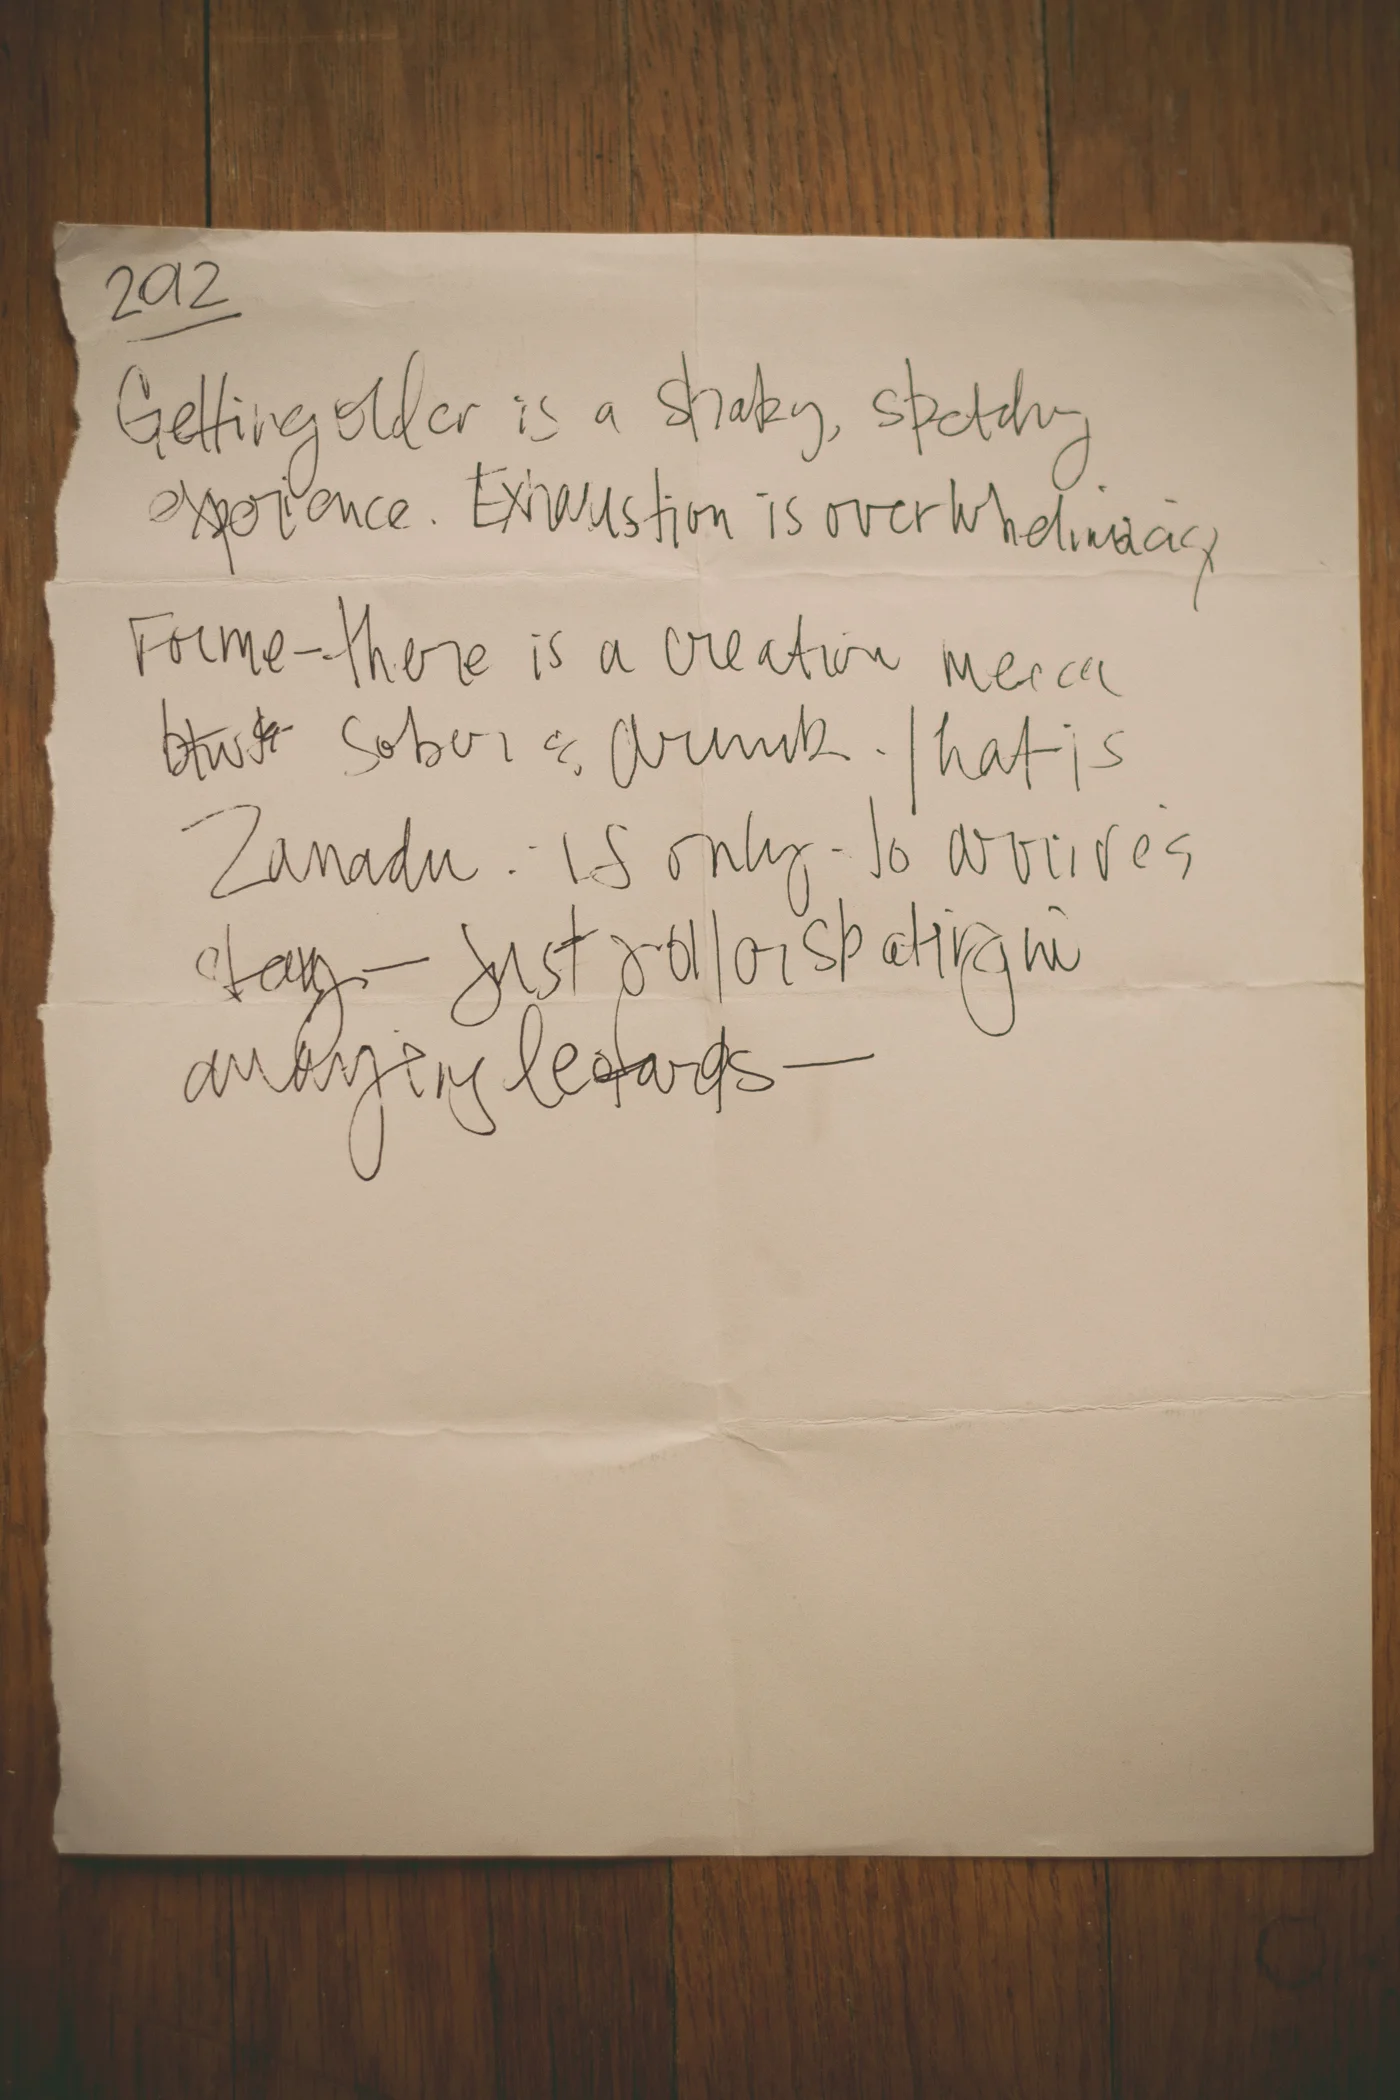 292
Getting older is a shaky, sketchy
experience. Exhaustion is overwhelming
For me - there is a creation mecca
btw sober & drunk. That is
Zanadu. is only to arrive &
stay — Just roll or
annoying —